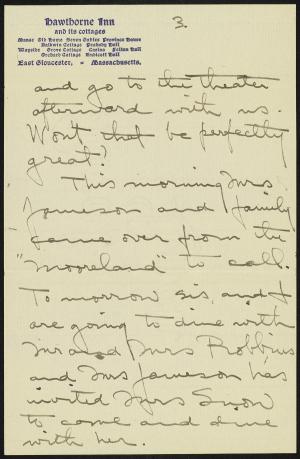 Hawthorne Inn
and its cottages
Manse Old Home Seven Gables Province House
Baldwin Cottage Peabody Hall
Wayside Grove Cottage Casino Fulton Hall
Orchard Cottage Endicott Hall
East Gloucester, - Massachusetts.
3.
and go to the theater
afterward with us.
Won't that be perfectly
great?
This morning Mrs
Jameson and family
came over from the
"Mooreland" to call.
To morrow sis and I
are going to dine with
Mr and Mrs Robbins
and Mrs Jameson has
invited Mrs Snow
to come and dine
with her.